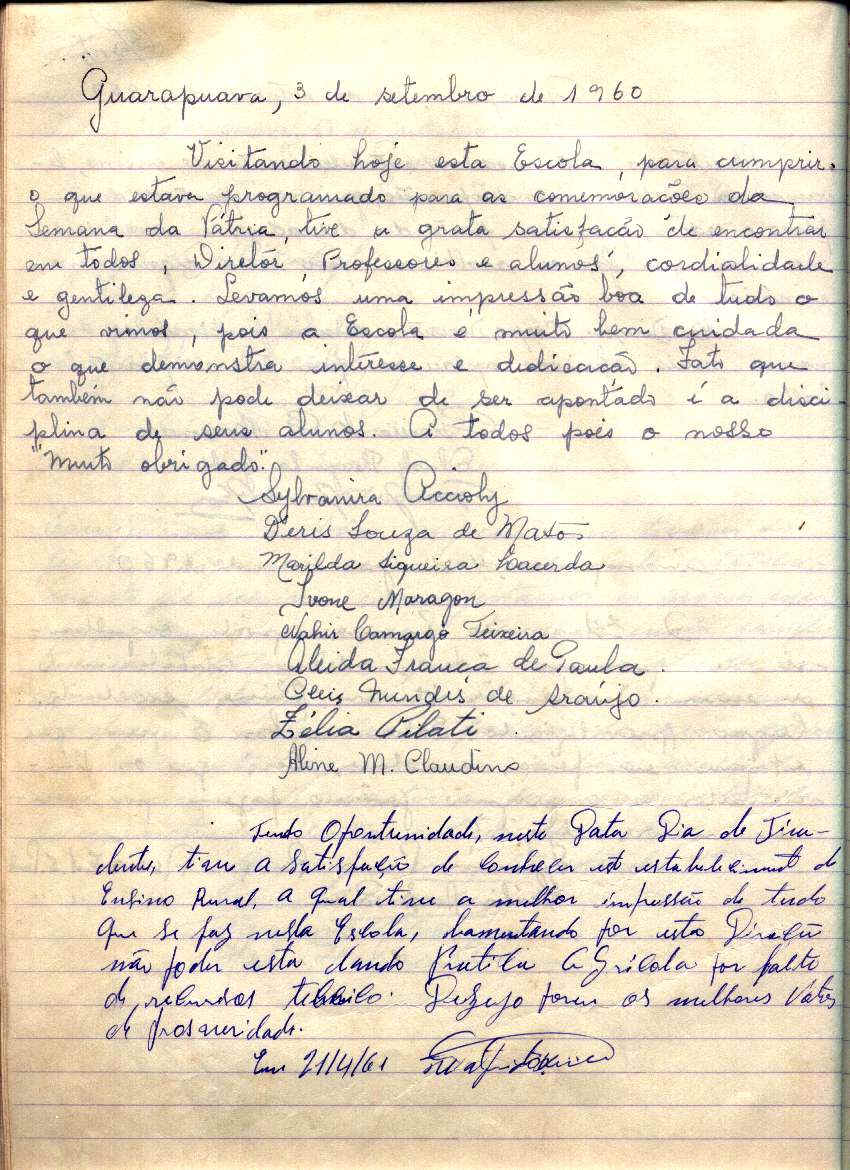 Guarapuava, 3 de setembro de 1960
Visitando hoje esta Escola, para cumprir
o que estava programado para as comemorações da
Semana da Pátria, tive a grata satisfação de encontrar
em todos, Diretôr, Professores e alunos, cordialidade
e gentileza. Levamos uma impressão boa de tudo o
que vimos, pois a Escola é muito bem cuidada
o que demonstra interêsse e dedicação. Fato que
também não pode deixar de ser apontado é a disci-
plina de seus alunos. A todos pois o nosso
"Muito obrigado".
Sylvanira Accioly
Deris Souza de Matos
Marilda Siqueira Lacerda
Ivone Maragon
Nahir Camargo Teixeira
Aleida França de Paula.
Mendes de Araújo.
Zélia Pilati.
Aline M. Claudino
Tendo Oportunidade, nesta Data Dia de Tira-
dentes, tive a Satisfação de Conhecer este estabeleciment de
Ensino Rural, a qual tive a melhor impressão de tudo
que se faz nesta Escola, lamentando por esta Direção
não poder esta dando Pratica Agricola por falta
de recursos tecnico. Desejo forem os melhores Votos
de prosperidade.
Em 21/4/61